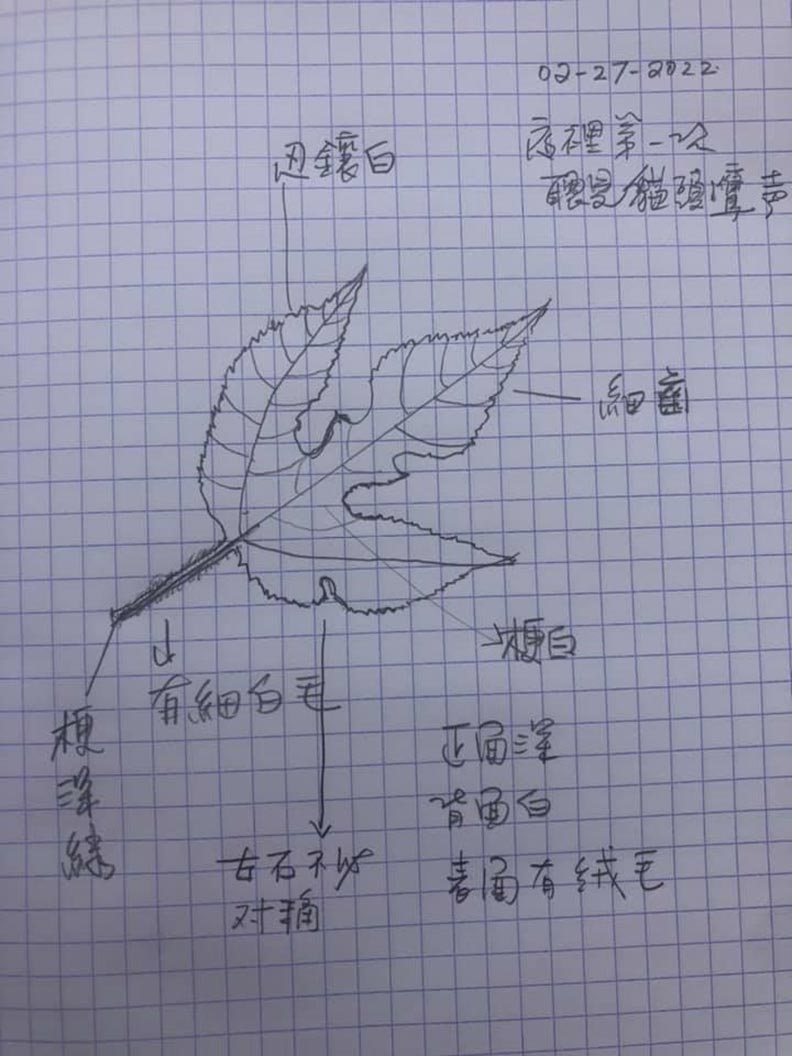 02-27-2022
店裡第一次
聽見貓頭鷹声
边鑲白
細齒
梗白
有細白毛
梗
深
綠
正面深
背面白
表面有絨毛
左右不必
对稱